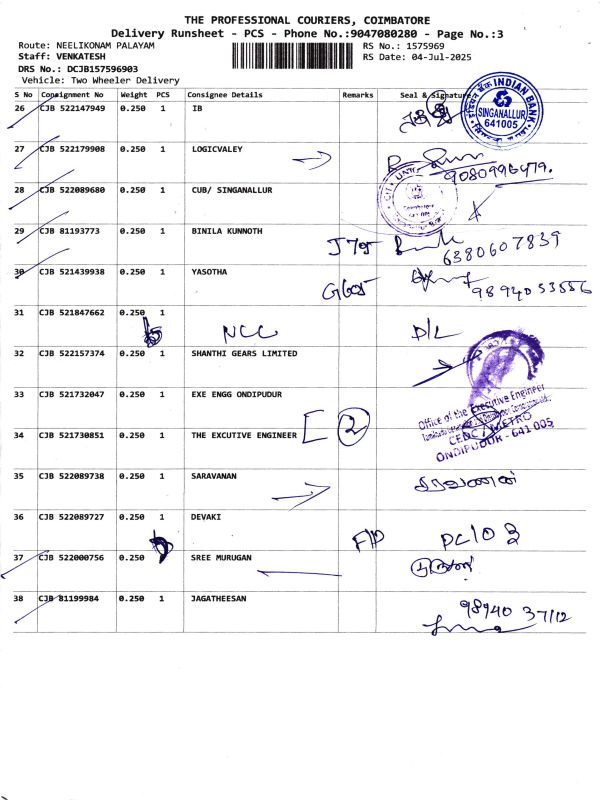 THE PROFESSIONAL COURIERS, COIMBATORE
Delivery Runsheet - PCS - Phone No.:9047080280 - Page No.:3
Route: NEELIKONAM PALAYAM
RS No.: 1575969
Staff: VENKATESH
RS Date: 04-Jul-2025
DRS No.: DCJB157596903
Vehicle: Two Wheeler Delivery
S No Consignment No Weight PCS Consignee Details Remarks Seal & Signature
26 CJB 522147949 0.250 1 IB
INDIAN BANK
SINGANALLUR
641005
27 CJB 522179908 0.250 1 LOGICVALEY
9080996479.
28 CJB 522089680 0.250 1 CUB/ SINGANALLUR
29 CJB 81193773 0.250 1 BINILA KUNNOTH
6380607839
30 CJB 521439938 0.250 1 YASOTHA
G605
9894053556
31 CJB 521847662 0.250 1
NCC D/L
32 CJB 522157374 0.250 1 SHANTHI GEARS LIMITED
33 CJB 521732047 0.250 1 EXE ENGG ONDIPUDUR
Office of the Executive Engineer
CEDC / METRO
ONDIPUDUR - 641 005
34 CJB 521730851 0.250 1 THE EXCUTIVE ENGINEER
2
35 CJB 522089738 0.250 1 SARAVANAN
சரவணன்
36 CJB 522089727 0.250 1 DEVAKI
37 CJB 522000756 0.250 1 SREE MURUGAN
38 CJB 81199984 0.250 1 JAGATHEESAN
98940 37112